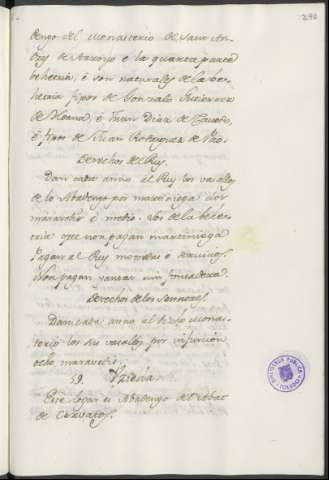 290
dengo del Monasterio de Sant An-
dres de Arroyo e la quarta parte
behetria, e son naturales de la be-
hetria fijos de Gonzalo Gutierrez
de Horna, e Juan Diaz de
e fijos de Juan Rodriguez de
Derechos del Rey.
Dan cada anno al Rey los vasallos
de lo Abadengo por martiniega dos
maravedis e medio. Los de la behe-
tria que non pagan martiniega
Pagan al Rey monedas e servicios.
Non pagan yantar nin fonsadera.
Derechos de los Sennores.
Dan cada anno al dicho Mona-
sterio los sus vasallos por infurcion
ocho maravedis.
59.
Este logar es Abadengo del Abat
de Cervatos.
BIBLIOTECA PUBLICA
TOLEDO